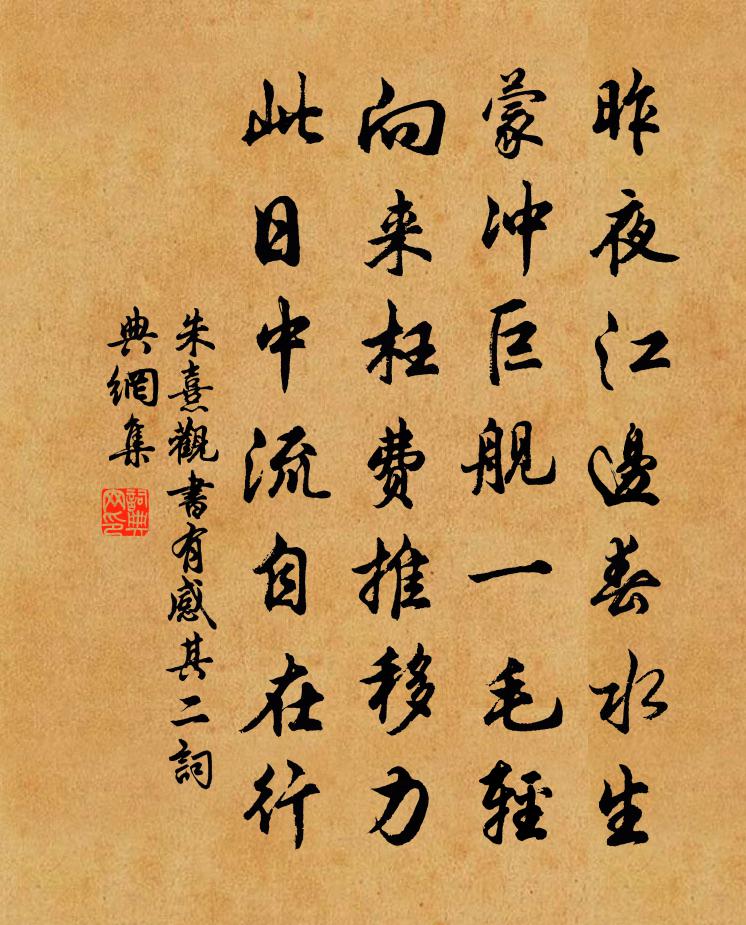 昨夜江邊春水生
蒙冲巨舰一毛輕
向来枉费推移力
此日中流自在行
朱熹觀書有感其二詞
典網集
詞典网印